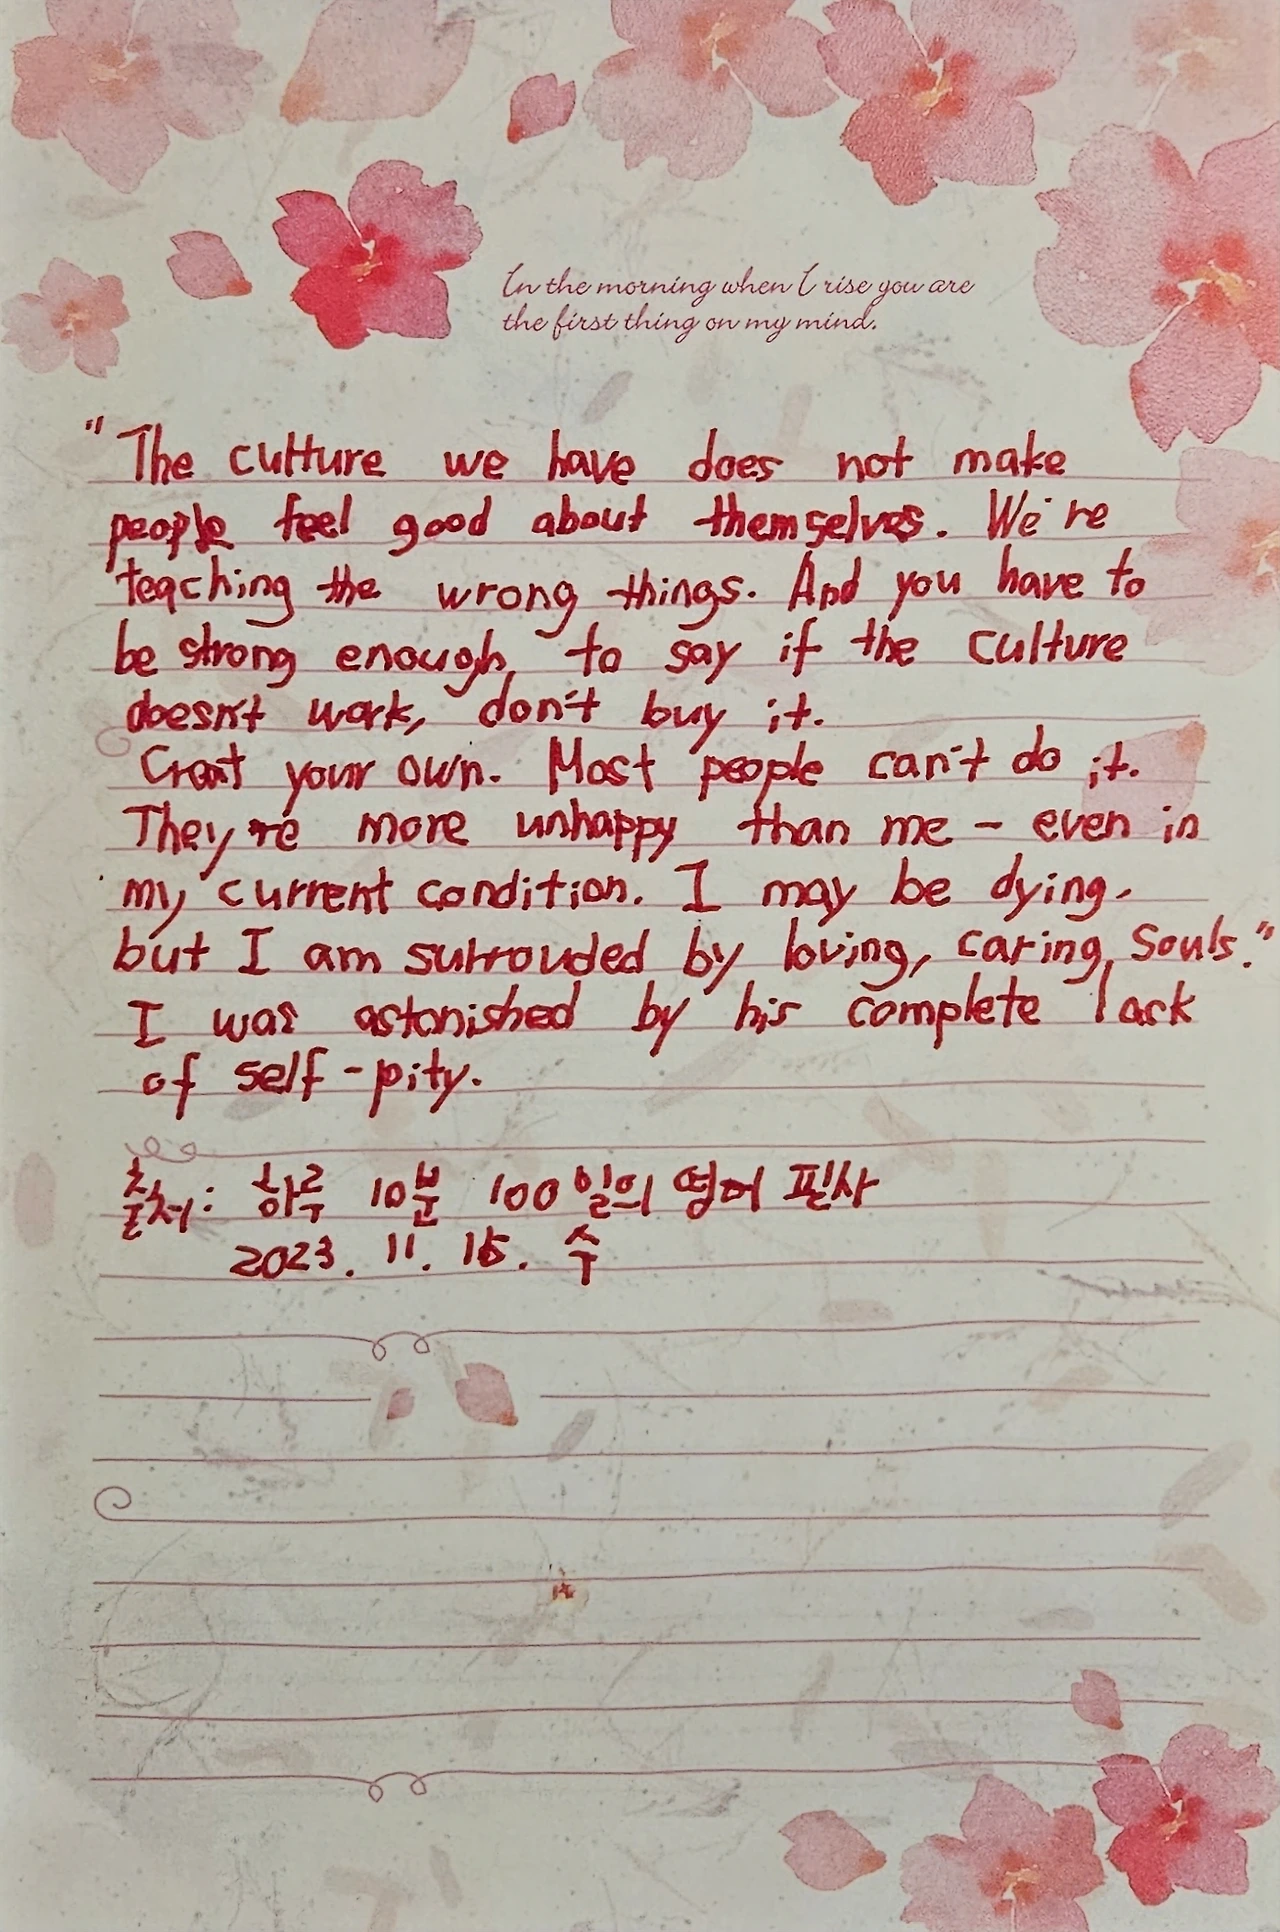 In the morning when I rise you are
the first thing on my mind.
"The culture we have does not make
people feel good about themselves. We're
teaching the wrong things. And you have to
be strong enough to say if the culture
doesn't work, don't buy it.
Creat your own. Most people can't do it.
They're more unhappy than me - even in
my current condition. I may be dying,
but I am surrouded by loving, caring souls."
I was astonished by his complete lack
of self-pity.
출처: 하루 10분 100일의 영어 필사
2023. 11. 15. 수